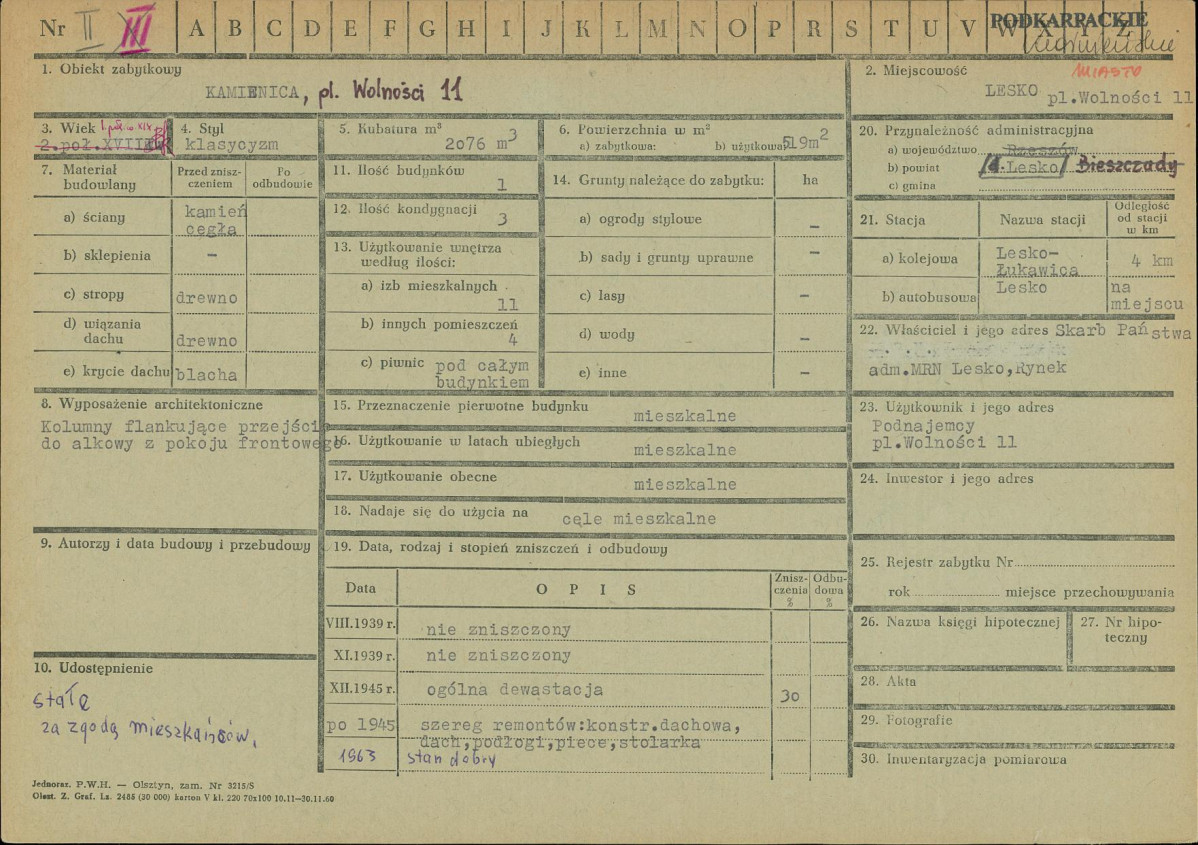 Nr II III A B C D E F G H I J K L M N O P R S T U V W X Y Z
PODKARPACKIE
1. Obiekt zabytkowy
KAMIENICA, pl. Wolności 11
2. Miejscowość
MIASTO
LESKO pl.Wolności 11
3. Wiek
2.poł.XVIII
4. Styl
klasycyzm
5. Kubatura m³
2076 m3
6. Powierzchnia w m²
a) zabytkowa: b) użytkowa: 519m2
20. Przynależność administracyjna
a) województwo Rzeszów
b) powiat Lesko Bieszczady
c) gmina
7. Materiał budowlany
Przed znisz-
czeniem
Po
odbudowie
a) ściany kamień
cęgła
b) sklepienia –
c) stropy drewno
d) wiązania
dachu drewno
e) krycie dachu blacha
11. Ilość budynków
1
12. Ilość kondygnacji
3
13. Użytkowanie wnętrza
według ilości:
a) izb mieszkalnych
11
b) innych pomieszczeń
4
c) piwnic pod całym
budynkiem
14. Grunty należące do zabytku: ha
a) ogrody stylowe –
b) sady i grunty uprawne –
c) lasy –
d) wody –
e) inne –
21. Stacja Nazwa stacji
Odległość
od stacji
w km
a) kolejowa Lesko-
Łukawica 4 km
b) autobusowa Lesko na
miejscu
22. Właściciel i jego adres Skarb Państwa
adm.MRN Lesko,Rynek
8. Wyposażenie architektoniczne
Kolumny flankujące przejści
do alkowy z pokoju frontowego
15. Przeznaczenie pierwotne budynku
mieszkalne
16. Użytkowanie w latach ubiegłych
mieszkalne
17. Użytkowanie obecne
mieszkalne
18. Nadaje się do użycia na
cęle mieszkalne
23. Użytkownik i jego adres
Podnajemcy
pl.Wolności 11
24. Inwestor i jego adres
9. Autorzy i data budowy i przebudowy
19. Data, rodzaj i stopień zniszczeń i odbudowy
Data O P I S
Znisz-
czenia
%
Odbu-
dowa
%
VIII.1939 r. nie zniszczony
XI.1939 r. nie zniszczony
XII.1945 r. ogólna dewastacja 30
po 1945 szereg remontów:konstr.dachowa,
dach,podłogi,piece,stolarka
1963 stan dobry
25. Rejestr zabytku Nr
rok miejsce przechowywania
26. Nazwa księgi hipotecznej
27. Nr hipo-
teczny
10. Udostępnienie
stałe
za zgodą mieszkańców.
28. Akta
29. Fotografie
30. Inwentaryzacja pomiarowa
Jednoraz. P.W.H. — Olsztyn, zam. Nr 3215/S
Olszt. Z. Graf. Ls. 2485 (30 000) karton V kl. 220 70x100 10.11—30.11.60